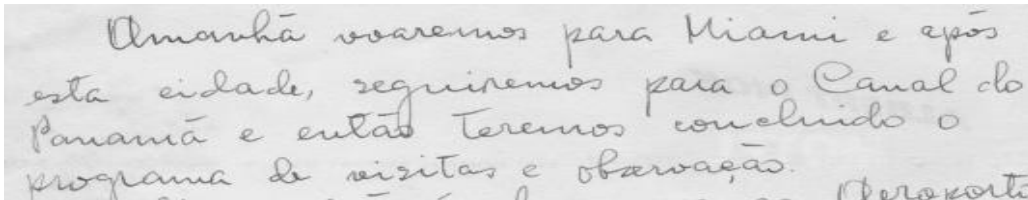 Amanhã voaremos para Miami e após
esta cidade, seguiremos para o Canal do
Panamá e então teremos concluido o
programa de visitas e observação.
Aeroporto